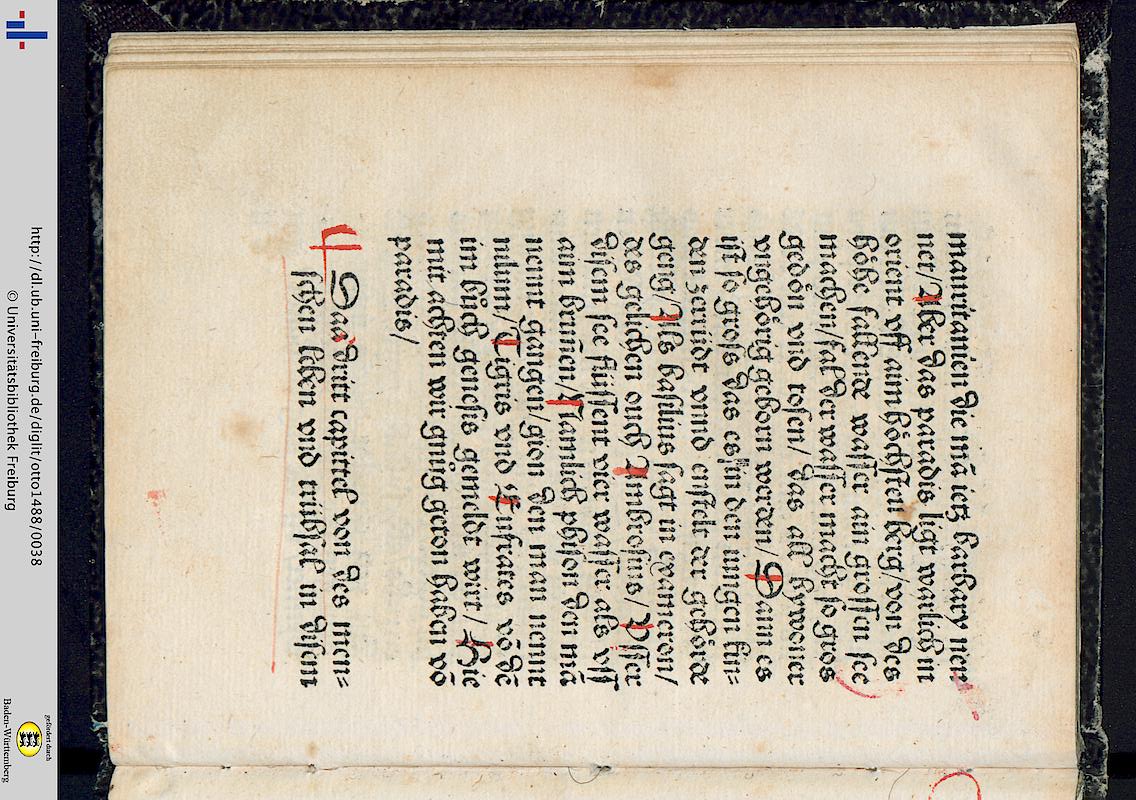 mauritanien die mā ietz barbary nen
net/ Aber das paradis ligt warlich in
orient vff aim höchsten berg/ von des
höhe fallende wasser ain grossen see
machen/ fal der wasser macht so gros
gedön vnd tosen/ das all bywoner
vngehörig geborn werden/ Dann es
ist so gros das es in den iungen kin=
den zerrüdt vnnd enstelt der gehörde
geng/ Als basilius sagt in exameron/
des gelichen ouch Ambrosius/ Vsser
disem see flüssent vier wasser als vss
aim brunen/ Namlich phison den mā
nennt gangen/ gion den man nennt
nilum/ Tigris vnd Eufrates vō dē
im buch genesis gemeldt wirt/ Hie
mit achten wir gnüg geton haben vō
paradis/
4
Das dritt capittel von des men=
schen leben vnd trübsal in disem
http://dl.ub.uni-freiburg.de/diglit/otto1488/0038
© Universitätsbibliothek Freiburg
gefördert durch
Baden-Württemberg